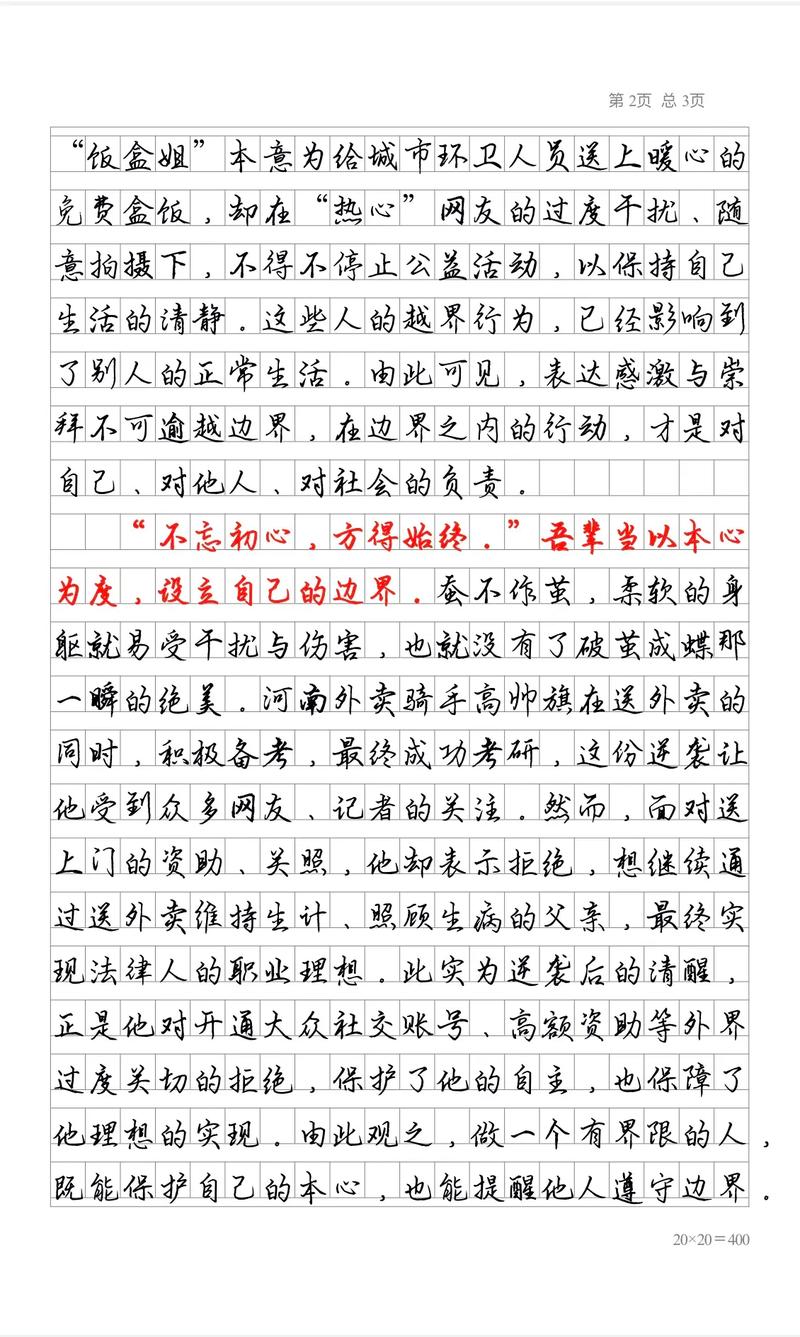 第 2页 总 3页
“饭盒姐”本意为给城市环卫人员送上暖心的
免费盒饭，却在“热心”网友的过度干扰、随
意拍摄下，不得不停止公益活动，以保持自己
生活的清静。这些人的越界行为，已经影响到
了别人的正常生活。由此可见，表达感激与崇
拜不可逾越边界，在边界之内的行动，才是对
自己、对他人、对社会的负责。
“不忘初心，方得始终．”吾辈当以本心
为度，设立自己的边界．蚕不作茧，柔软的身
躯就易受干扰与伤害，也就没有了破茧成蝶那
一瞬的绝美。河南外卖骑手高帅旗在送外卖的
同时，积极备考，最终成功考研，这份逆袭让
他受到众多网友、记者的关注。然而，面对送
上门的资助、关照，他却表示拒绝，想继续通
过送外卖维持生计、照顾生病的父亲，最终实
现法律人的职业理想。此实为逆袭后的清醒，
正是他对开通大众社交账号、高额资助等外界
过度关切的拒绝，保护了他的自主，也保障了
他理想的实现。由此观之，做一个有界限的人，
既能保护自己的本心，也能提醒他人遵守边界。
20×20＝400